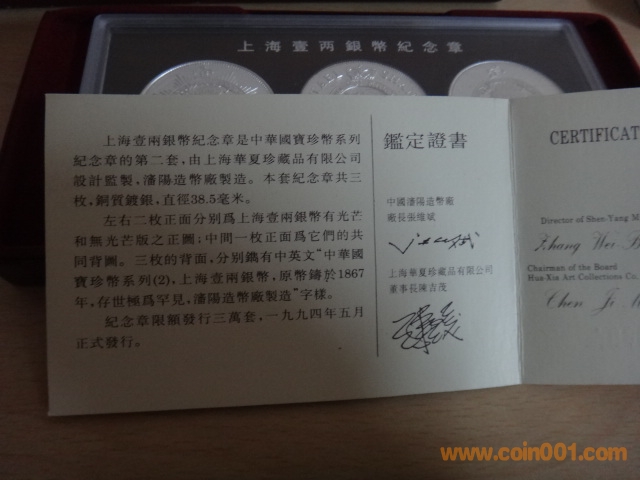 上海壹两銀幣紀念章
上海壹兩銀幣紀念章是中華國寶珍幣系列
紀念章的第二套，由上海華夏珍藏品有限公司
設計監製，瀋陽造幣廠製造。本套紀念章共三
枚，銅質鍍銀，直徑38.5毫米。
左右二枚正面分別爲上海壹兩銀幣有光芒
和無光芒版之正圖；中間一枚正面爲它們的共
同背圖。三枚的背面，分别鐫有中英文“中華國
寶珍幣系列(2)，上海壹兩銀幣，原幣鑄於1867
年，存世極爲罕見，瀋陽造幣廠製造”字樣。
紀念章限額發行三萬套，一九九四年五月
正式發行。
鑑定證書
中國瀋陽造幣廠
廠長張维斌
上海華夏珍藏品有限公司
董事長陳吉茂
CERTIFICAT
Director of Shen-Yang M
Zhang Wei B
Chairman of the Board
Hua Xia Art Collections Co,
Chen Ji
www.coin001.com